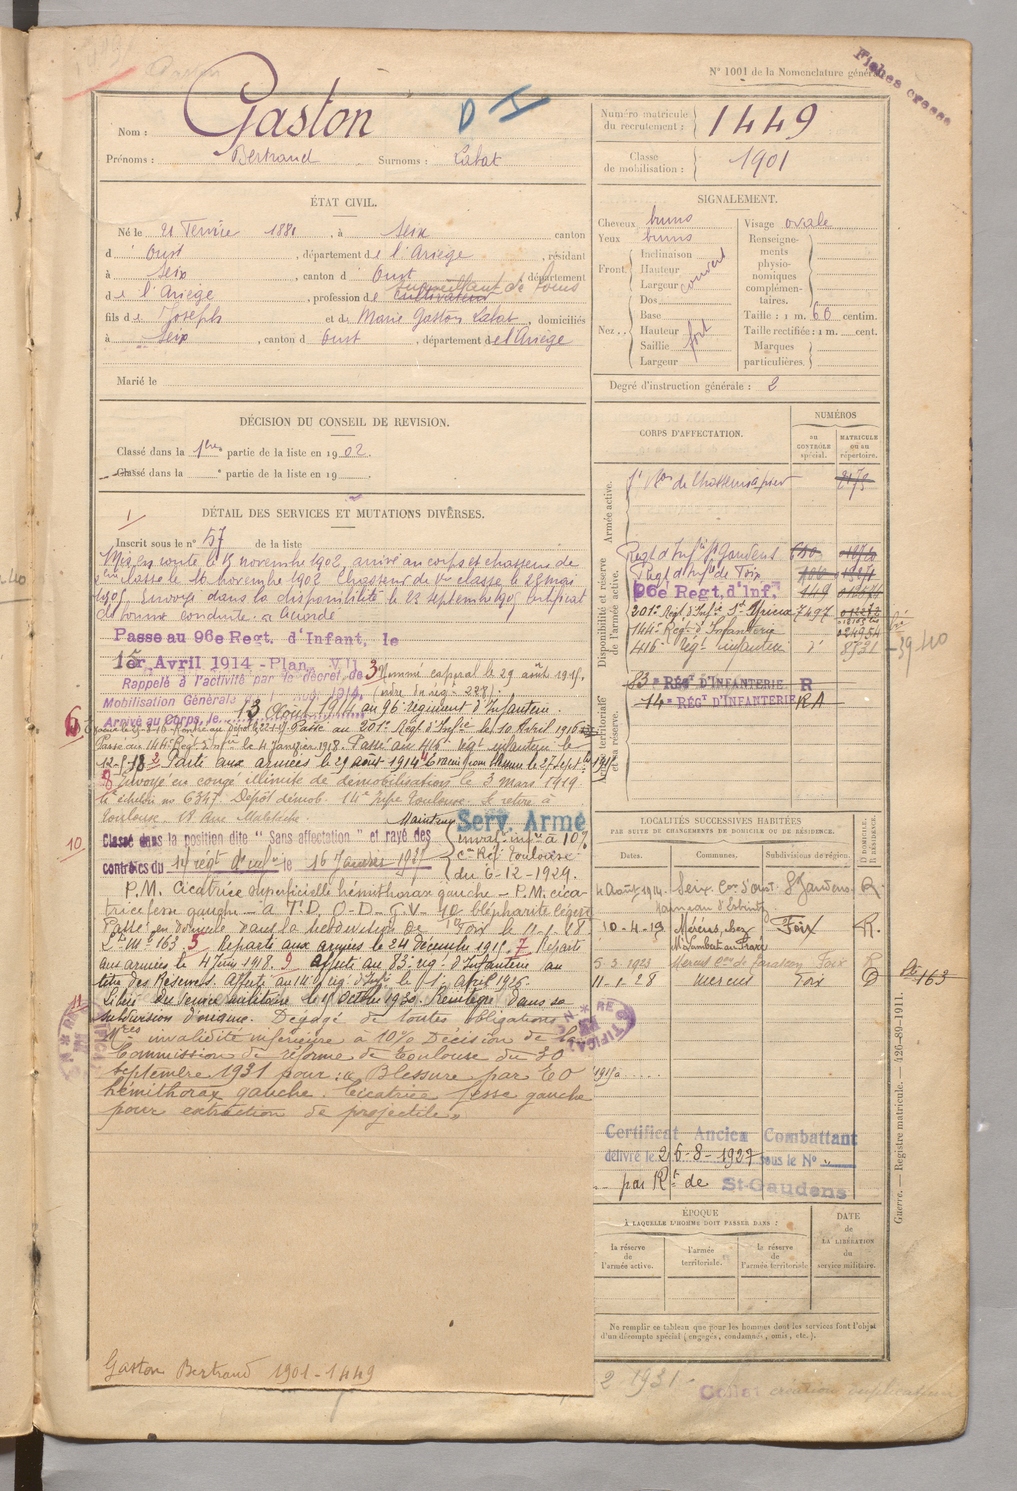 N° 1001 de la Nomenclature générale
Fiches
Nom : Gaston
D
Prénoms : Bertrand Surnoms : Labat
Numéro matricule du recrutement : 1449
Classe de mobilisation : 1901
ÉTAT CIVIL.
Né le 21 1881, à Seix canton
d'Oust, département de l'Ariège, résidant
à Seix, canton d'Oust département
de l'Ariège, profession de cultivateur surveillant de
fils de Joseph et de Marie Gaston Labat, domiciliés
à Seix, canton d Oust, département de l'Ariège
Marié le
SIGNALEMENT.
Cheveux bruns
Yeux bruns
Front Inclinaison Hauteur Largeur couvert
Nez Dos Base Hauteur Saillie Largeur fort
Visage ovale
Renseignements physionomiques complémentaires.
Taille : 1 m. 60 centim.
Taille rectifiée : 1 m. cent.
Marques particulières.
Degré d'instruction générale : 2
DÉCISION DU CONSEIL DE REVISION.
Classé dans la 1ère partie de la liste en 1902.
Classé dans la e partie de la liste en 19 .
CORPS D'AFFECTATION.
NUMÉROS
au CONTRÔLE spécial.
MATRICULE ou au répertoire.
Armée active.
de Chasseurs à pied 2173
Disponibilité et réserve de l'armée active.
Regt d'Infie St Gaudens
Regt d'Infie de Foix
96e Regt. d'Inf. 449
201e Régt d'Infie St Yrieix 7497
144e Régt d'Infanterie 024954
416e Régt infanterie 8531
Armée territoriale et sa réserve.
83e RÉGT D'INFANTERIE R
14e RÉGT D'INFANTERIE RA
DÉTAIL DES SERVICES ET MUTATIONS DIVERSES.
1
Inscrit sous le n° 57 de la liste
Mis en route le 15 novembre 1902, arrivé au corps et chasseur de
2ème classe le 16 novembre 1902. Chasseur de 1ère classe le 28 mai
1905. Envoyé dans la disponibilité le 23 septembre 1905 Certificat
de bonne conduite : Accordé
Passe au 96e Regt. d'Infant. le
1er Avril 1914 - Plan VII
Rappelé à l'activité par le décret de
Mobilisation Générale du 1 Août 1914.
3 Nommé caporal le 29 août 1915.
(ordre du régt 228)
Arrivé au Corps, le 13 Août 1914 au 96e régiment d'Infanterie.
Passé au 201e Régt d'Infie le 10 Avril 1916
Passé au 144e Régt d'Infie le 4 Janvier 1918. Passé au 416e régt infanterie le
12-5-18 2 Parti aux armées le 29 août 1914
8 Envoyé en congé illimité de démobilisation le 3 mars 1919
échelon no 6347 Dépôt démob. 14e Infie Toulouse. Se retire à
Toulouse, 18 Rue Malbiche
10
Classé dans la position dite "Sans affectation" et rayé des
contrôles du 14e régt d'inf le 16 1927
Maintenu Serv. Armé
inval. infre à 10%
con Réf Toulouse
du 6-12-1929.
P.M. Cicatrice superficielle hémithorax gauche - P.M. cicatrice
fesse gauche - à T.D, O-D-G.V. 10 blépharite légère
Passé en domicile dans la subdivision de Foix le 11-1-28
5 Reparti aux armées le 24 décembre 1915. 7 Reparti
aux armées le 4 Juin 1918. 9 Affecté au 83e rég. d'Infanterie au
titre des Réserves. Affecté au 14e rég. d'Inf. le 1er avril 1926.
11
Libéré du service militaire le 1 Octobre 1930. Réintégré dans sa
subdivision d'origine. Dégagé de toutes obligations
invalidité inférieure à 10% Décision de la
Commission de réforme de Toulouse du 30
septembre 1931 pour : « Blessure par E.O
hémithorax gauche. Cicatrice fesse gauche
pour extraction de projectile »
Gaston Bertrand 1901-1449
LOCALITÉS SUCCESSIVES HABITÉES
PAR SUITE DE CHANGEMENTS DE DOMICILE OU DE RÉSIDENCE.
Dates. Communes. Subdivisions de région. D DOMICILE. R RÉSIDENCE.
4 Août 1914 Seix Con d'Oust St Gaudens R
10-4-19 Mérens, chez Foix R.
5-3-1923 Mercus con de Tarascon Foix R
11-1-28 Mercus Foix D
163
Certificat Ancien Combattant
délivré le 26-8-1927 sous le N°
par Rt de St-Gaudens
ÉPOQUE
À LAQUELLE L'HOMME DOIT PASSER DANS :
la réserve de l'armée active.
l'armée territoriale.
la réserve de l'armée territoriale
DATE de LA LIBÉRATION du service militaire.
Ne remplir ce tableau que pour les hommes dont les services font l'objet
d'un décompte spécial (engagés, condamnés, omis, etc.).
Guerre. — Registre matricule. — 426-89-1911.
2 1931